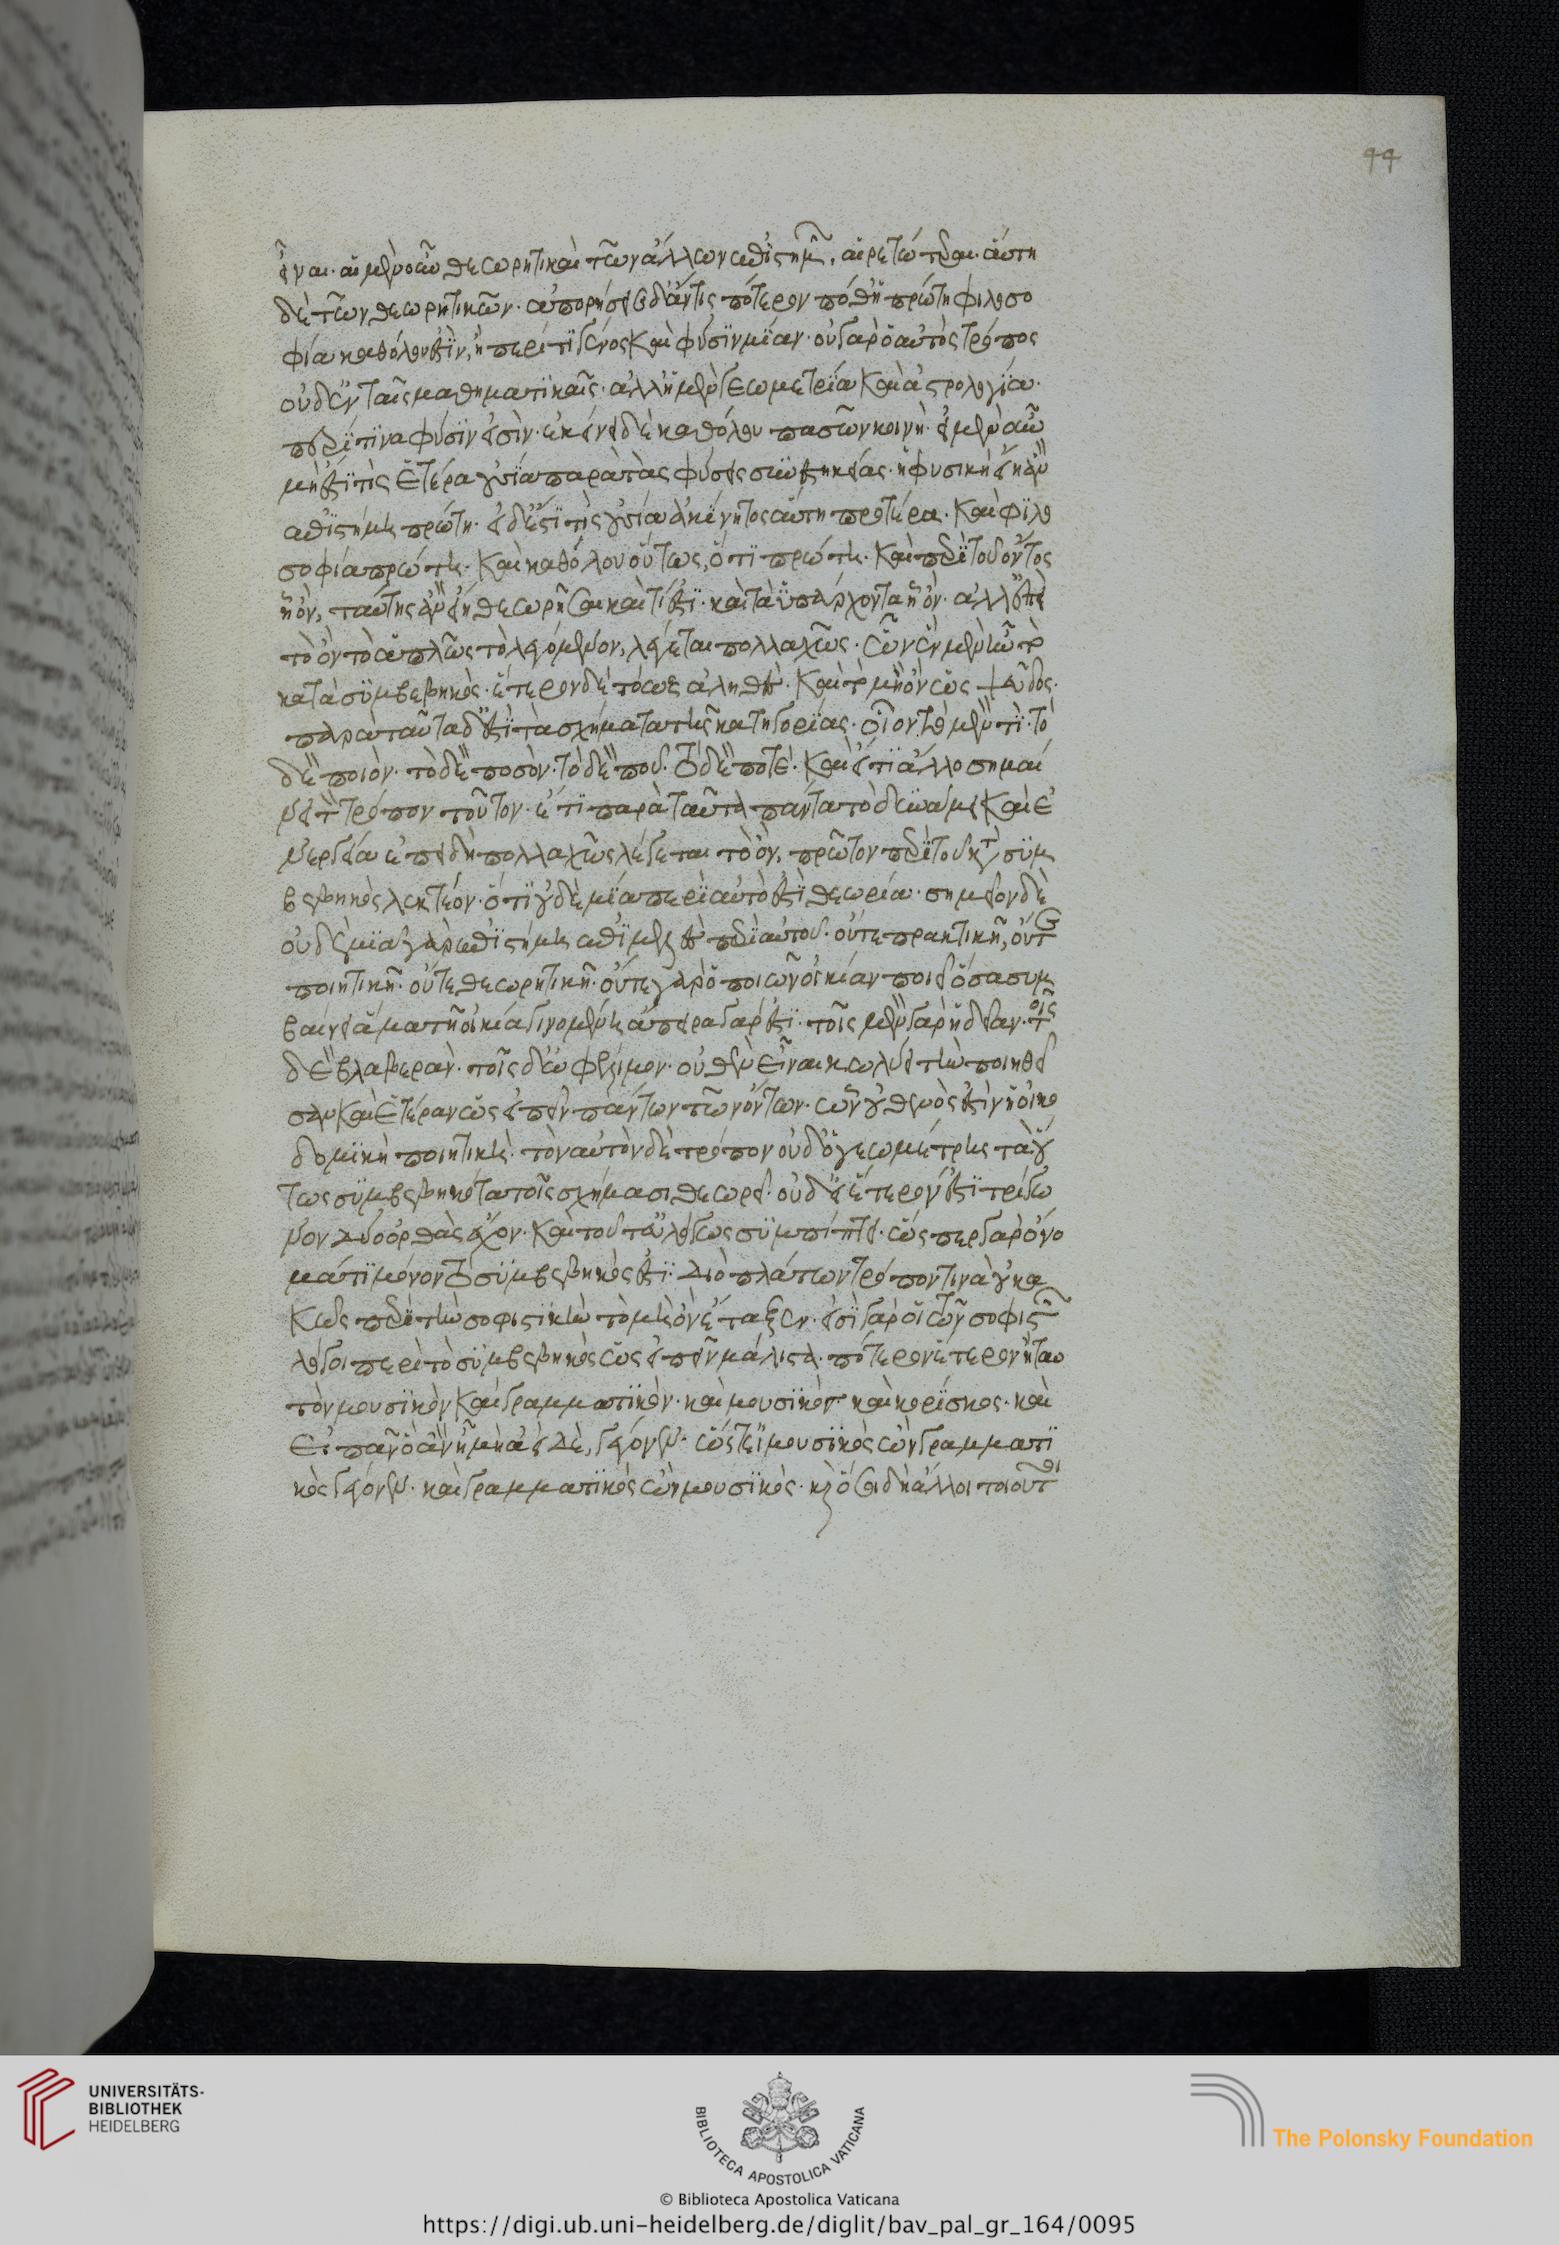 44
εἶναι· αἱ μὲν οὖν θεωρητικαὶ τῶν ἄλλων ἐπιστημῶν, αἱρετώτεραι· αὕτη
δὲ τῶν θεωρητικῶν· ἀπορήσειε δ' ἄν τις πότερον ποθ' ἡ πρώτη φιλοσο
φία καθόλου ἐστὶν, ἢ περί τι γένος καὶ φύσιν μίαν· οὐ γὰρ ὁ αὐτὸς τρόπος
οὐδ' ἐν ταῖς μαθηματικαῖς· ἀλλ' ἡ μὲν γεωμετρία καὶ ἀστρολογία·
περί τινα φύσιν εἰσὶν· ἐκείνη δὲ καθόλου πασῶν κοινὴ· εἰ μὲν οὖν
μὴ ἐστί τις ἑτέρα οὐσία παρὰ τὰς φύσει συνεστηκείας· ἡ φυσικὴ εἴη ἂν
ἐπιστήμη πρώτη· εἰ δ' ἔστι τις οὐσία ἀκίνητος αὕτη προτέρα· καὶ φιλο
σοφία πρώτη· καὶ καθόλου οὕτως, ὅτι πρώτη· καὶ περὶ τοῦ ὄντος
ἧ ὂν, ταύτης ἂν εἴη θεωρῆσαι καὶ τί ἐστι· καὶ τὰ ὑπάρχοντα ἧ ὄν· ἀλλ' ἐπεὶ
τὸ ὂν τὸ ἁπλῶς τὸ λεγόμενον, λέγεται πολλαχῶς· ὧν ἓν μὲν ἦν τὸ
κατὰ συμβεβηκὸς· ἕτερον δὲ τὸ ὡς ἀληθὲς· καὶ τὸ μὴ ὂν ὡς ψεῦδος·
παρὰ ταῦτα δ' ἐστὶ τὰ σχήματα τῆς κατηγορίας· οἷον τὸ μὲν τὶ· τὸ
δὲ ποιὸν· τὸ δὲ ποσὸν· τὸ δὲ ποῦ· τὸ δὲ ποτὲ· καὶ εἴ τι ἄλλο σημαί
νει τὸν τρόπον τοῦτον· ἔτι παρὰ ταῦτα πάντα τὸ δυνάμει καὶ ἐ
νεργείᾳ ἐπειδὴ πολλαχῶς λέγεται τὸ ὂν, πρῶτον περὶ τοῦ κατὰ συμ
βεβηκὸς λεκτέον· ὅτι οὐδὲ μία περὶ αὐτὸ ἐστὶ θεωρία· σημεῖον δὲ
οὐδεμία γὰρ ἐπιστήμη ἐπιμελὲς περὶ αὐτοῦ· οὔτε πρακτικῇ, οὔτε
ποιητικῇ· οὔτε θεωρητικῇ· οὔτε γὰρ ὁ ποιῶν οἰκίαν ποιεῖ ὅσα συμ
βαίνει ἅμα τῇ οἰκίᾳ γινομένῃ ἄπειρα γάρ ἐστι· τοῖς μὲν γὰρ ἡδεῖαν· τοῖς
δὲ βλαβερὰν· τοῖς δ' ὠφέλιμον· οὐθὲν εἶναι κωλύει τὴν ποιηθεῖ
σαν καὶ ἑτέραν ὡς εἰπεῖν πάντων τῶν ὄντων· ὧν οὐθενός ἐστιν ἡ οἰκο
δομικὴ ποιητικὴ· τὸν αὐτὸν δὲ τρόπον οὐδ' ὁ γεωμέτρης τὰ οὕ
τως συμβεβηκότα τοῖς σχήμασι θεωρεῖ· οὐδ' εἰ ἕτερόν ἐστι τρίγω
νον δύο ὀρθὰς ἔχον· καὶ τοῦτ' εὐλόγως συμπίπτει· ὥσπερ γὰρ ὀνό
ματι μόνον τὸ συμβεβηκός ἐστι· διὸ πλάτων τρόπον τινὰ οὐ κα
κῶς περὶ τὴν σοφιστικὴν τὸ μὴ ὂν ἔταξεν· εἰσὶ γὰρ οἱ τῶν σοφιστῶν
λόγοι περὶ τὸ συμβεβηκὸς ὡς εἰπεῖν μάλιστα· πότερον ἕτερον ἢ ταυ
τὸν μουσικὸν καὶ γραμματικόν· καὶ μουσικὸς καὶ κορίσκος· καὶ
εἰ πᾶν ὃ ἂν ἦ μὴ ἀεὶ δὲ, γέγονεν· ὥστ' εἰ μουσικὸς ὢν γραμματι
κὸς γέγονεν· καὶ γραμματικὸς ὢν μουσικός· καὶ ὅσοι δὴ ἄλλοι τοιοῦτοι
UNIVERSITÄTS-
BIBLIOTHEK
HEIDELBERG
BIBLIOTECA APOSTOLICA VATICANA
The Polonsky Foundation
© Biblioteca Apostolica Vaticana
https://digi.ub.uni-heidelberg.de/diglit/bav_pal_gr_164/0095